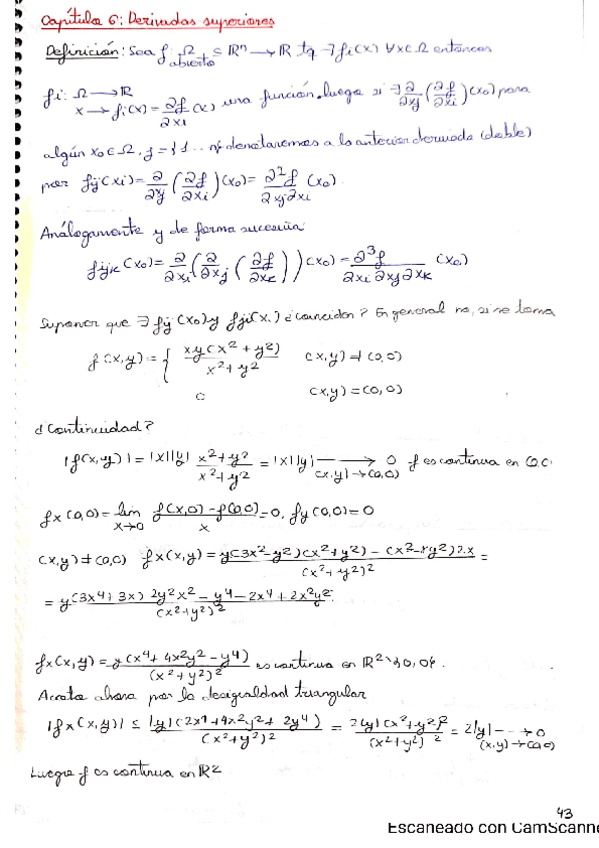 Capítulo 6: Derivadas superiores
Definición: Sea f: Ω ⊆ ℝⁿ → ℝ tq ∃ fi(x) ∀x∈Ω entonces
abierto
fi: Ω → ℝ
x → fi(x) = ∂f/∂xi (x) una función. Luego si ∃ ∂/∂xj (∂f/∂xi)(x₀) para
algún x₀∈Ω, j = {1...n} denotaremos a la anterior derivada (doble)
por fij(xi) = ∂/∂xj (∂f/∂xi)(x₀) = ∂²f/∂xj∂xi (x₀)
Análogamente y de forma sucesiva:
fijk(x₀) = ∂/∂xi (∂/∂xj (∂f/∂xk))(x₀) = ∂³f/∂xi∂xj∂xk (x₀)
Suponer que ∃ fij(x₀) y fji(x.) ¿coinciden? En general no, si se toma
f(x,y) = { xy(x² + y²)/x² + y² (x,y) ≠ (0,0)
0 (x,y) = (0,0)
¿Continuidad?
|f(x,y)| = |x||y| x²+y²/x²+y² = |x||y| → 0 f es continua en (0,0)
(x,y)→(0,0)
fx(0,0) = lim x→0 f(x,0) - f(0,0)/x = 0, fy(0,0) = 0
(x,y) ≠ (0,0) fx(x,y) = y(3x²-y²)(x²+y²) - (x²-y²)2x/(x²+y²)² =
= y(3x⁴+3x) 2y²x² - y⁴ - 2x⁴ + 2x²y²/(x²+y²)²
fx(x,y) = y(x⁴+4x²y²-y⁴)/(x²+y²)² es continua en ℝ²\{0,0}.
Acoto ahora por la desigualdad triangular
|fx(x,y)| ≤ |y|(2x⁴+4x²y²+2y⁴)/(x²+y²)² = 2|y|(x²+y²)²/(x²+y²)² = 2|y| → 0
(x,y)→(0,0)
Luego f es continua en ℝ²
43
Escaneado con CamScanne